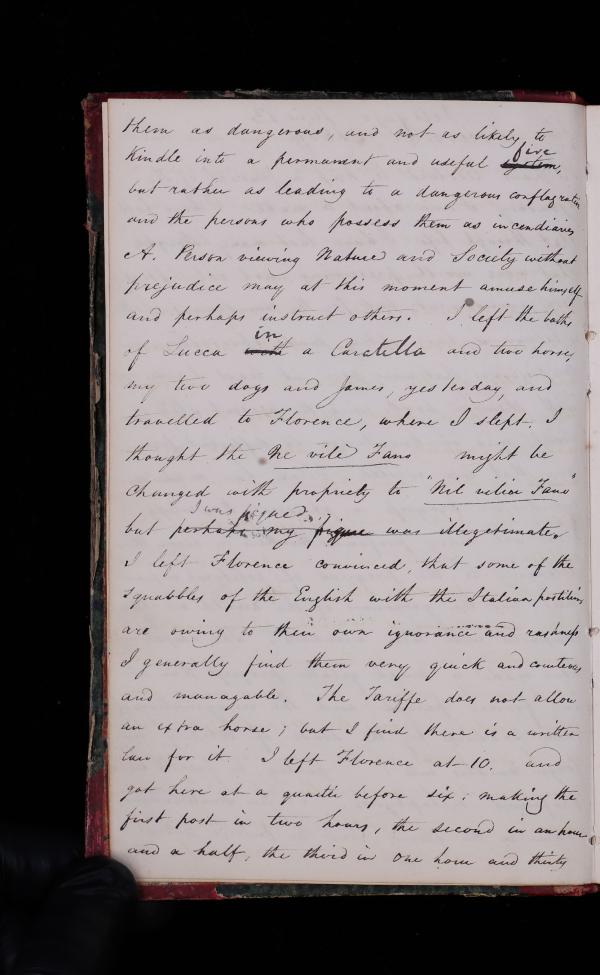 them as dangerous, and not as likely to
Kindle into a permanent and useful system, fire
but rather as leading to a dangerous conflagration
and the persons who possess them as incendiaries
A. Person viewing Nature and Society without
prejudice may at this moment amuse himself
and perhaps instruct others. I left the baths
of Lucca with in a Caretella and two horses,
my two dogs and James, yesterday, and
travelled to Florence, where I slept. I
thought the Ne vile Fano might be
changed with propriety to "Nil vilior Fano"
I was piqued
but perhaps my pique was illegitimate.
I left Florence convinced, that some of the
squabbles of the English with the Italian postilions
are owing to their own ignorance and rashness
I generally find them very quick and courteous
and managable. The Tariffe does not allow
an extra horse; but I find there is a written
law for it. I left Florence at 10. and
got here at a quarter before six; making the
first post in two hours, the second in an hour
and a half, the third in one hour and thirty